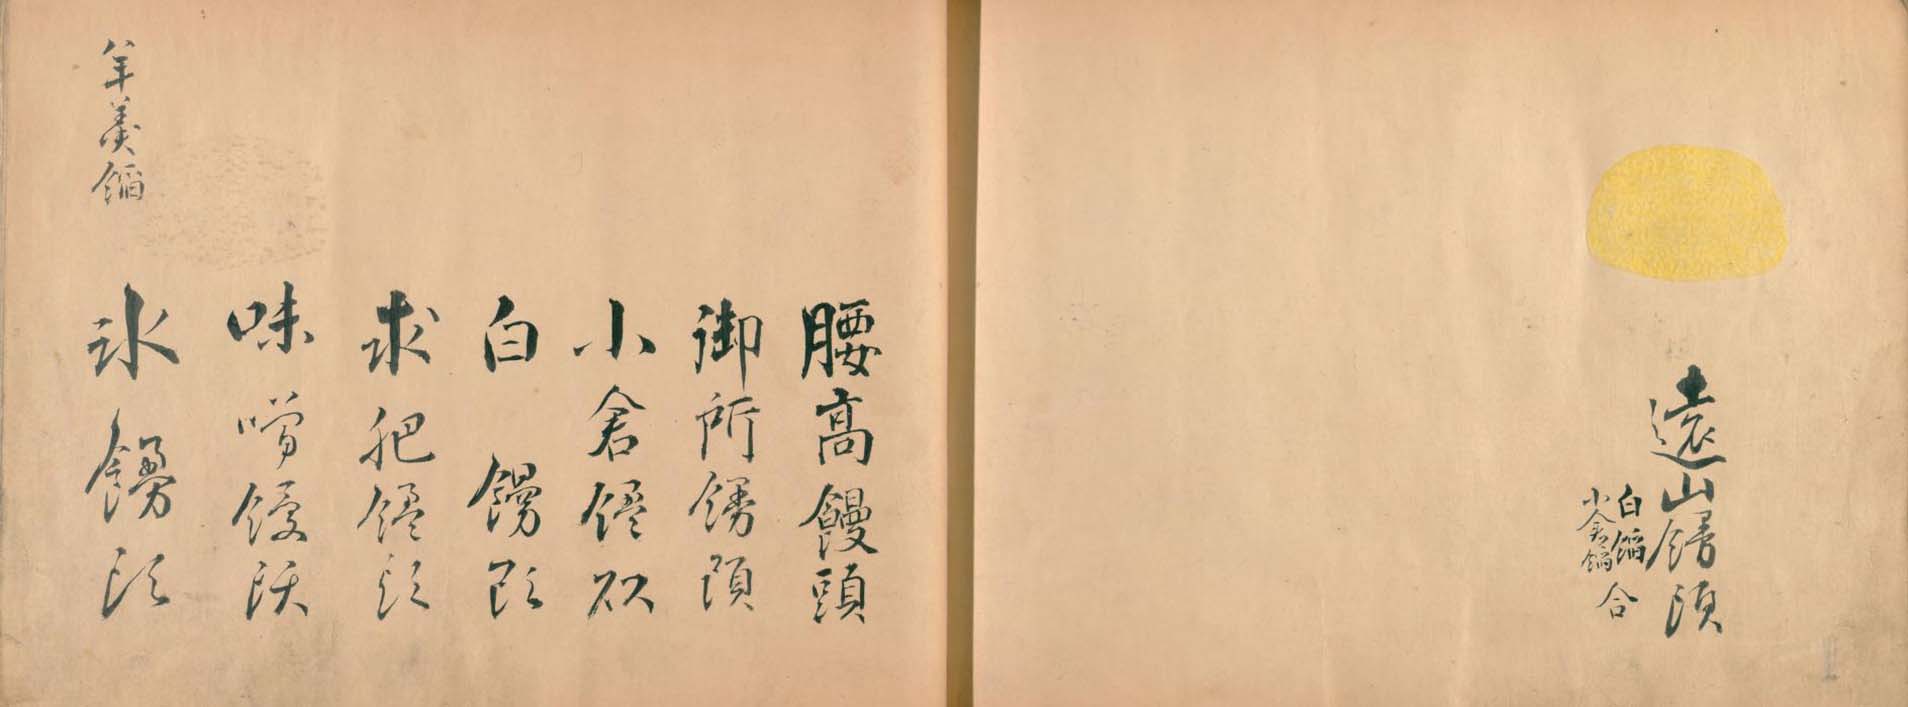 遠山饅頭
白餡
小倉餡
合
腰高饅頭
御所饅頭
小倉饅頭
白饅頭
求肥饅頭
味噌饅頭
氷饅頭
羊羹餡